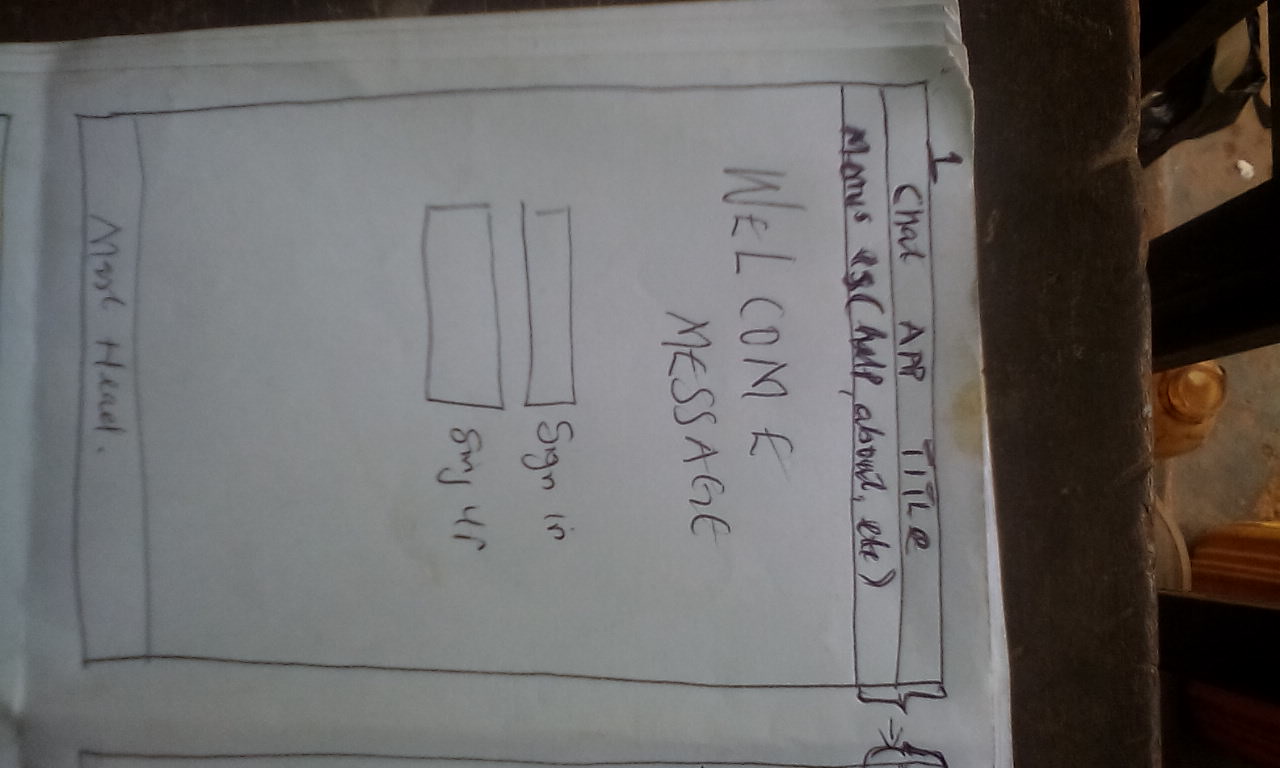 1
Chat APP TITLE
Menus eg (help, about, etc)
WELCOME
MESSAGE
Sign in
Sing up
Mast Head.